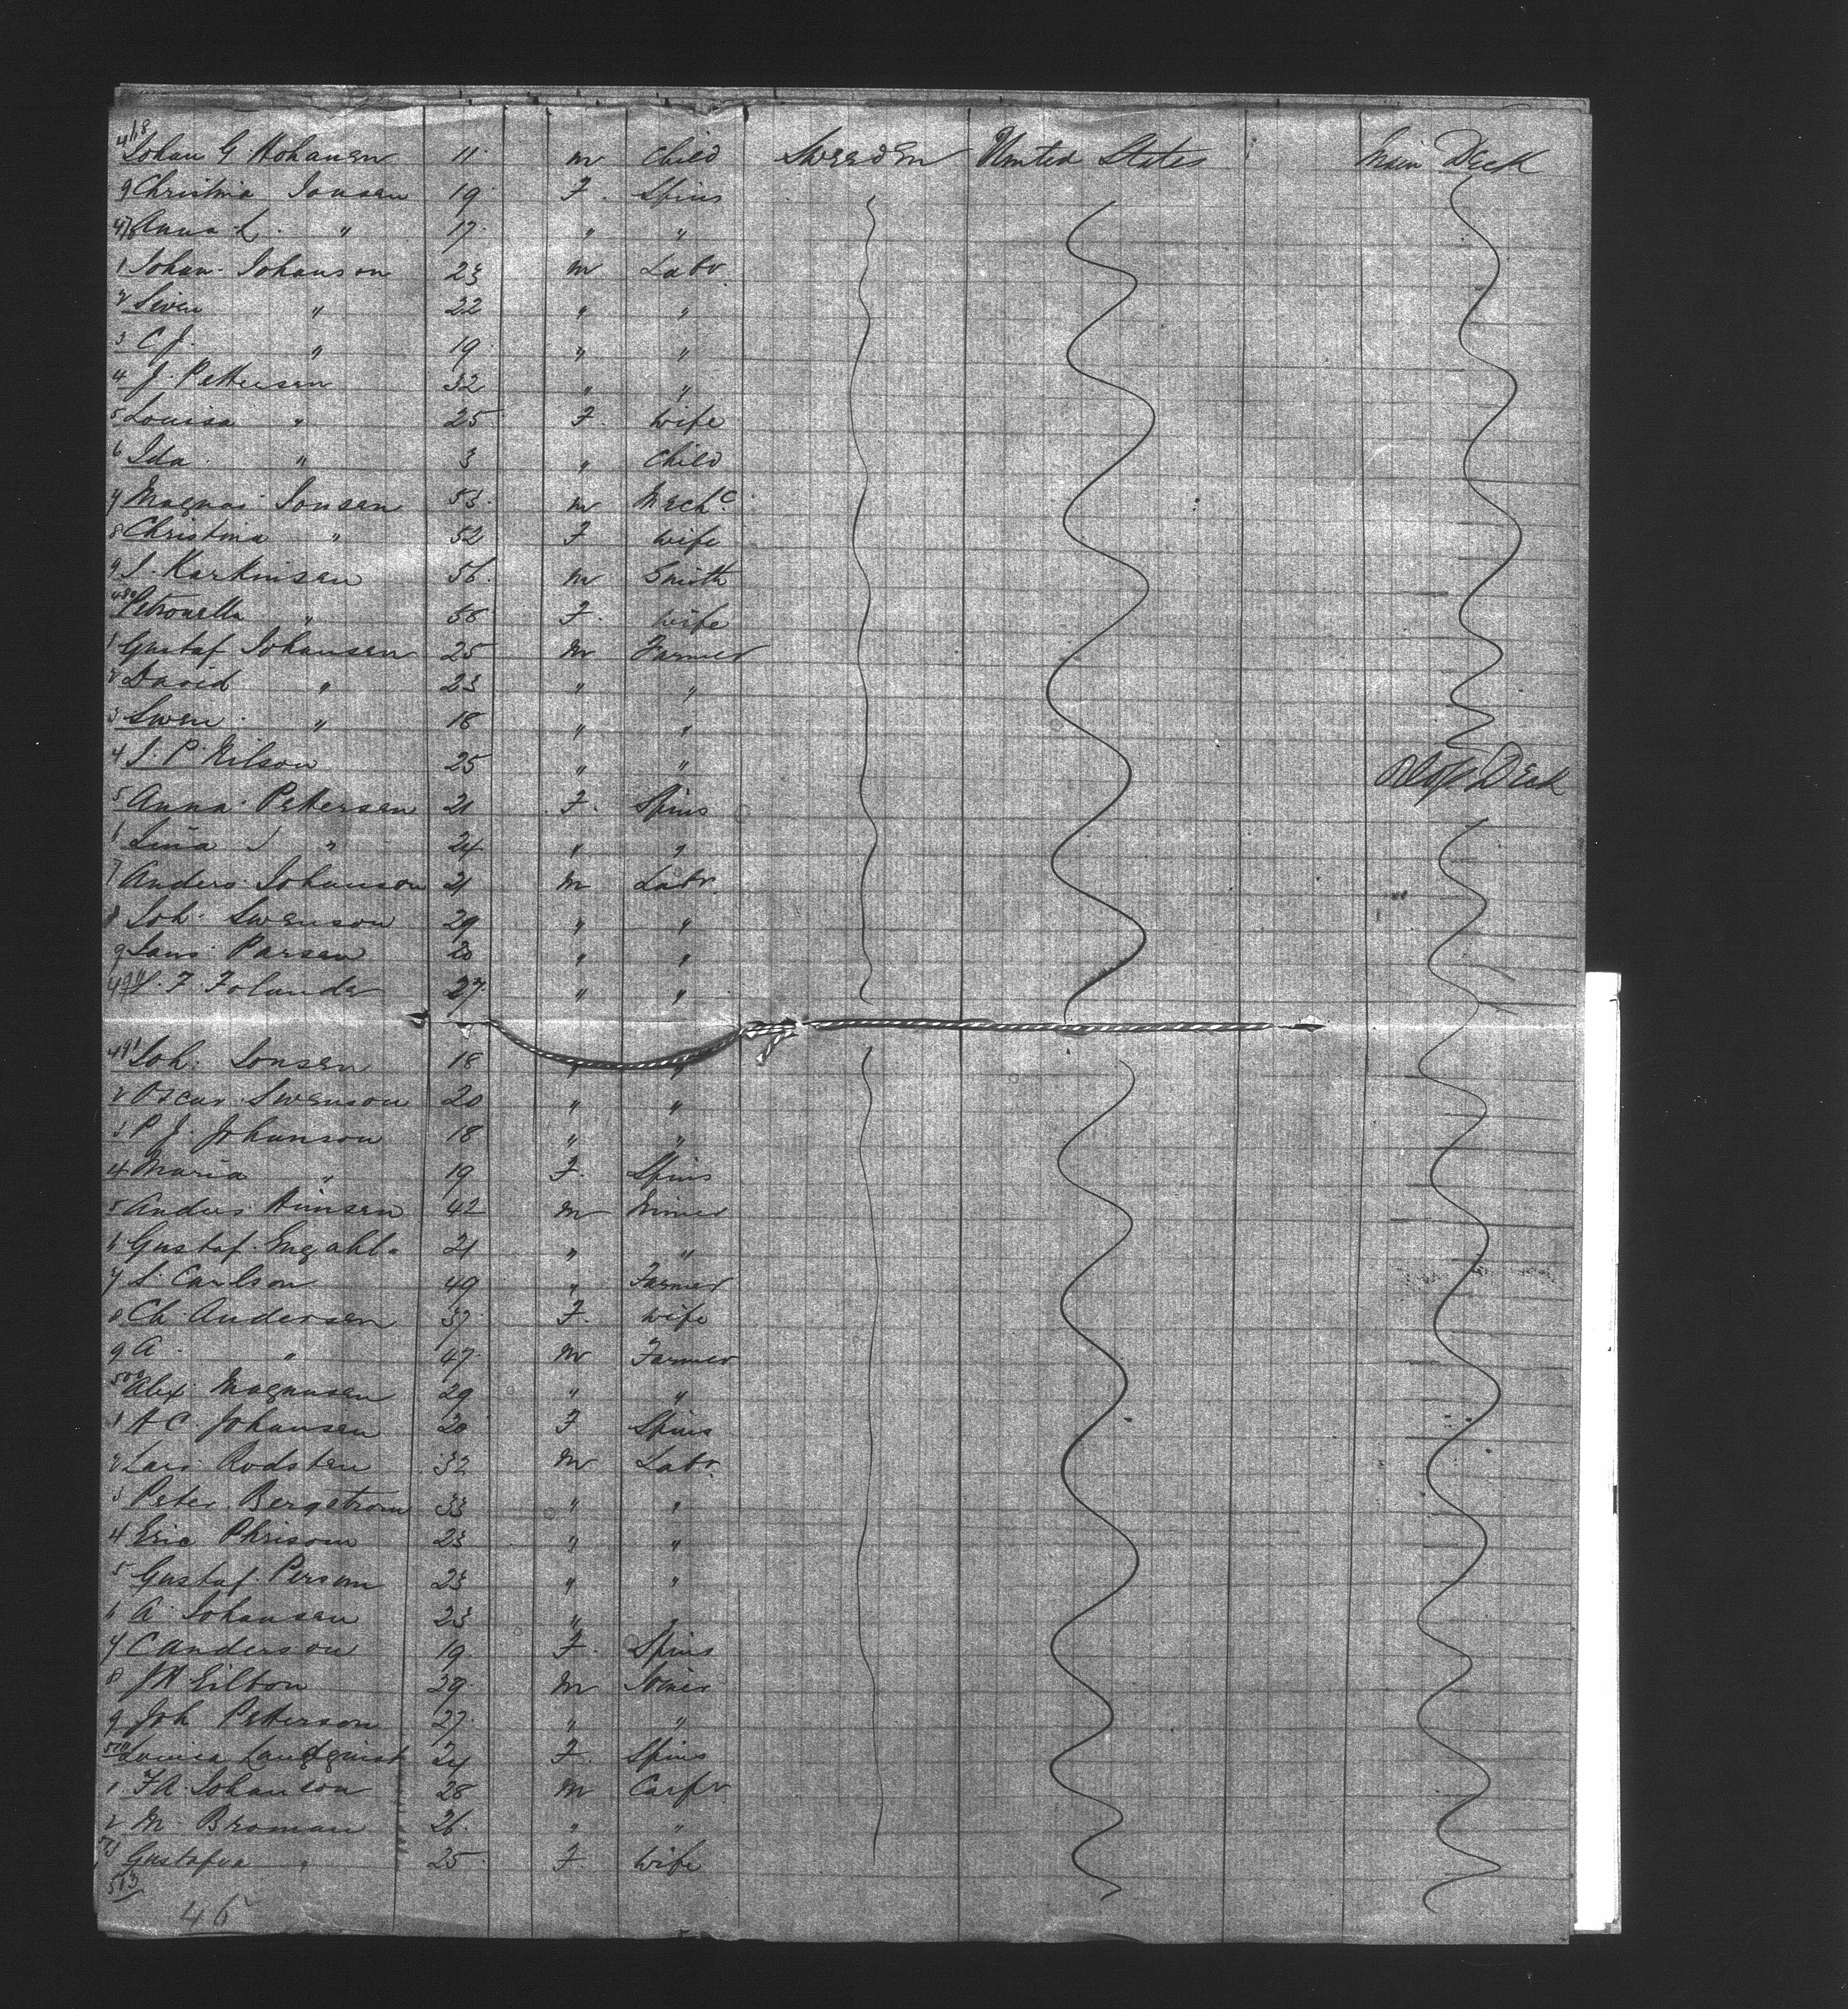 468 Johan G Hohansen 11 m Child Sweden United States Main Deck
9 Christina Jonsen 19 F. Spins
470 Anna L. " 17 " "
1 Johan Johanson 23 m Labr
2 Swen " 22 " "
3 C J. " 19 " "
4 J. Pettersen 32 " "
5 Louisa " 25 F. wife
6 Ida " 3 " Child
7 Magnus Jonsen 53 m Mechc
8 Christina " 52 F wife
9 J. Karknisen 56 m Smith
480 Petronella " 58 F. wife
1 Gustaf Johansen 25 m Farmer
2 David " 23 " "
3 Swen " 18 " "
4 J. P. Nilson 25 " "
5 Anna Pettersen 21 F. Spins
6 Lina J " 24 " "
7 Anders Johanson 21 m Labr.
8 Joh. Swenson 29 " "
9 Lars Parsen 20 " "
490 F. Folander 27 " "
491 Joh. Jonsen 18 " "
2 Oscar Swenson 20 " "
3 P. J. Johanson 18 " "
4 Maria " 19 F. Spins
5 Anders 42 m Miner
6 Gustaf 21 " "
7 S. Carlson 49 " Farmer
8 Ch Andersen 37 F. wife
9 A " 47 m Farmer
500 Alex Magnusen 29 " "
1 A C. Johansen 20 F Spins
2 Lars Rodsten 32 m Labr.
3 Peter Bergstrom 33 " "
4 Eric 23 " "
5 Gustaf Person 23 " "
6 A Johansen 23 " "
7 C Anderson 19 F. Spins
8 J A 29 m
9 Joh Petterson 27 " "
510 Louisa Landquist 24 F. Spins
1 F A Johanson 28 m Carpr.
2 M. Broman 26 " "
513 Gustafva " 25 F. wife
513
46